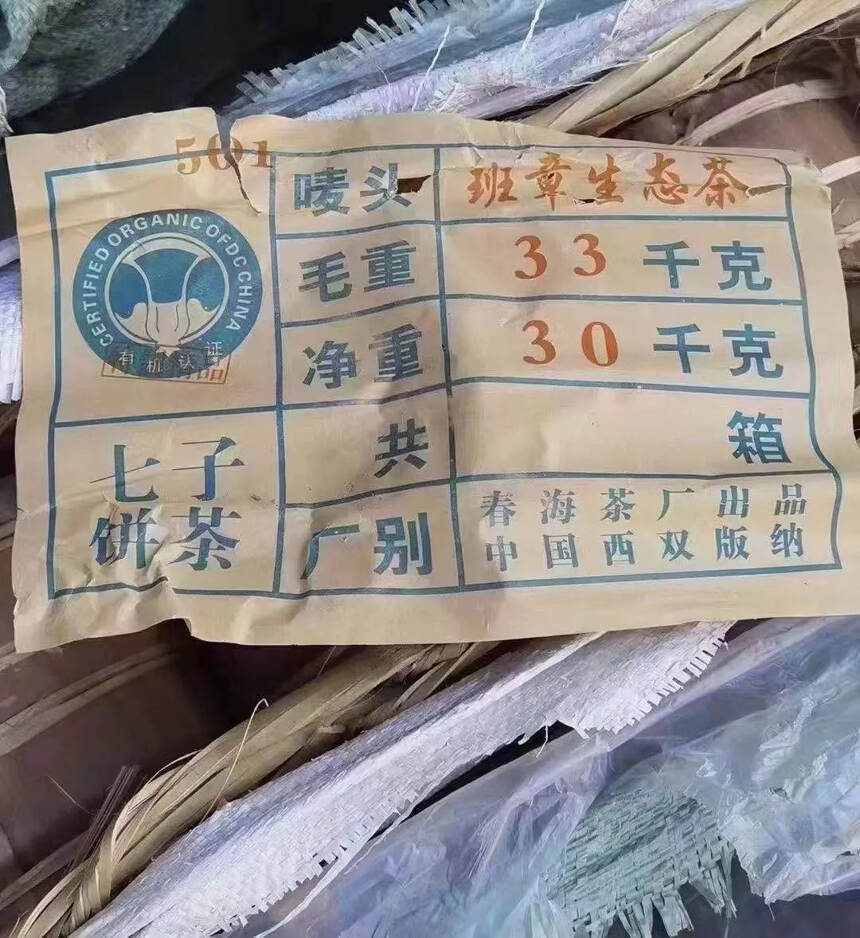 501
唛头 班章生态茶
CERTIFIED ORGANIC OFDC CHINA
有机认证
毛重 33 千克
净重 30 千克
共 箱
七子
饼茶
厂别
春海茶厂出品
中国西双版纳